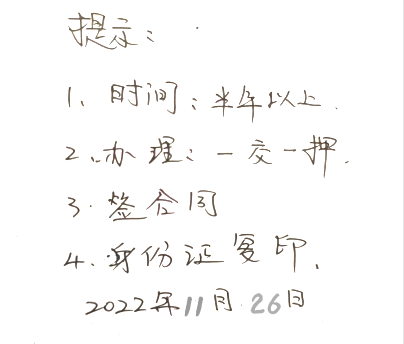 提示：
1、时间：半年以上.
2、办理：一交一押.
3.签合同
4.身份证复印.
2022年11月26日